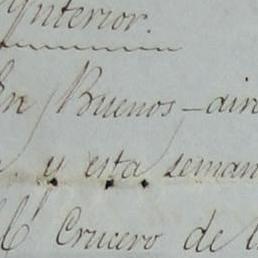 Interior.
En Buenos-air
y esta seman
Crucero de l